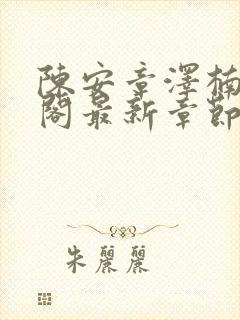 陳安章澤楠
閣最新章節
朱麗麗